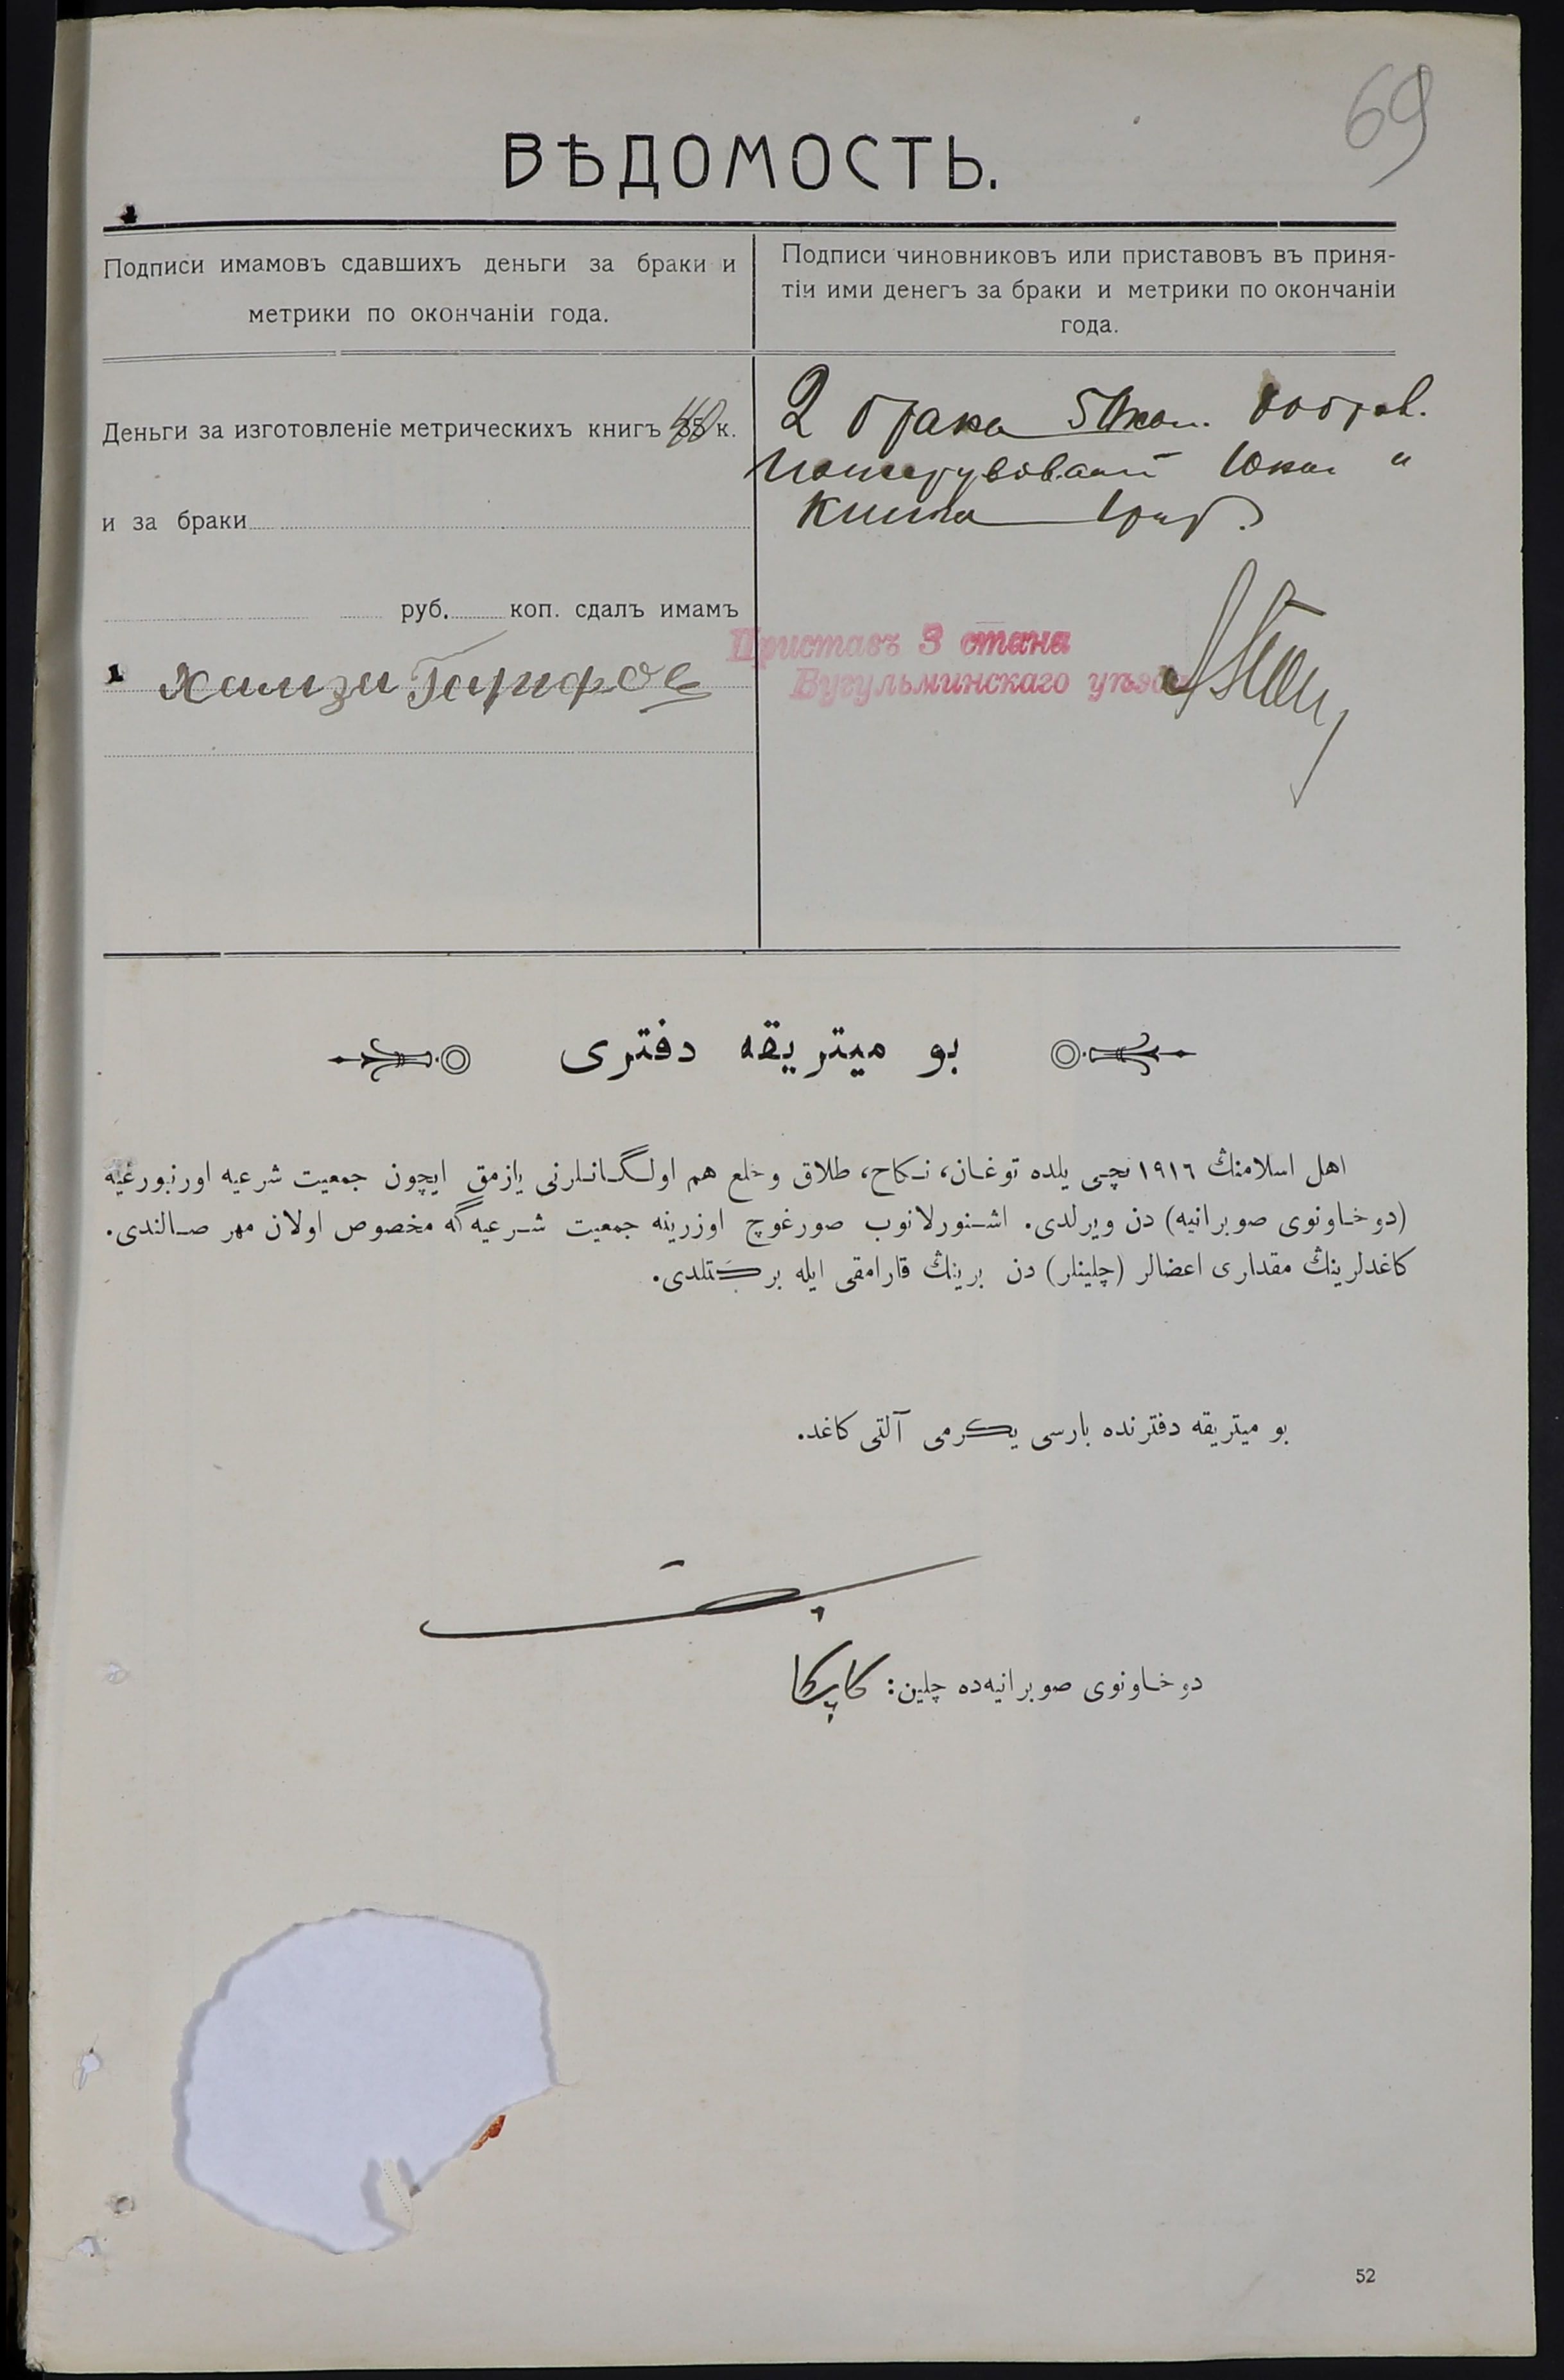 69
ВѢДОМОСТЬ.
Подписи имамовъ сдавшихъ деньги за браки и
метрики по окончаніи года.
Подписи чиновниковъ или приставовъ въ приня-
тіи ими денегъ за браки и метрики по окончаніи
года.
Деньги за изготовленіе метрическихъ книгъ к.
и за браки
руб. коп. сдалъ имамъ
Хамзи Гарифов
2 брака 50 коп.
10 коп "
Книга
Приставъ 3 стана
Бугульминскаго уѣзда
بو ميتريقه دفترى
اهل اسلامنڭ ١٩١٦ نچى يلده توغان، نكاح، طلاق وخلع هم اولگانلرنى يازمق ايچون جمعيت شرعيه اورنبورغيه
(دوخاونوى صوبرانيه) دن ويرلدى. اشنورلانوب صورغوچ اوزرينه جمعيت شرعيه گه مخصوص اولان مهر صالندى.
كاغدلرينڭ مقدارى اعضالر (چلينلر) دن برينڭ قارامقى ايله بركتلدى.
بو ميتريقه دفترنده بارسى يكرمى آلتى كاغد.
دوخاونوى صوبرانيه‌ده چلين:
52